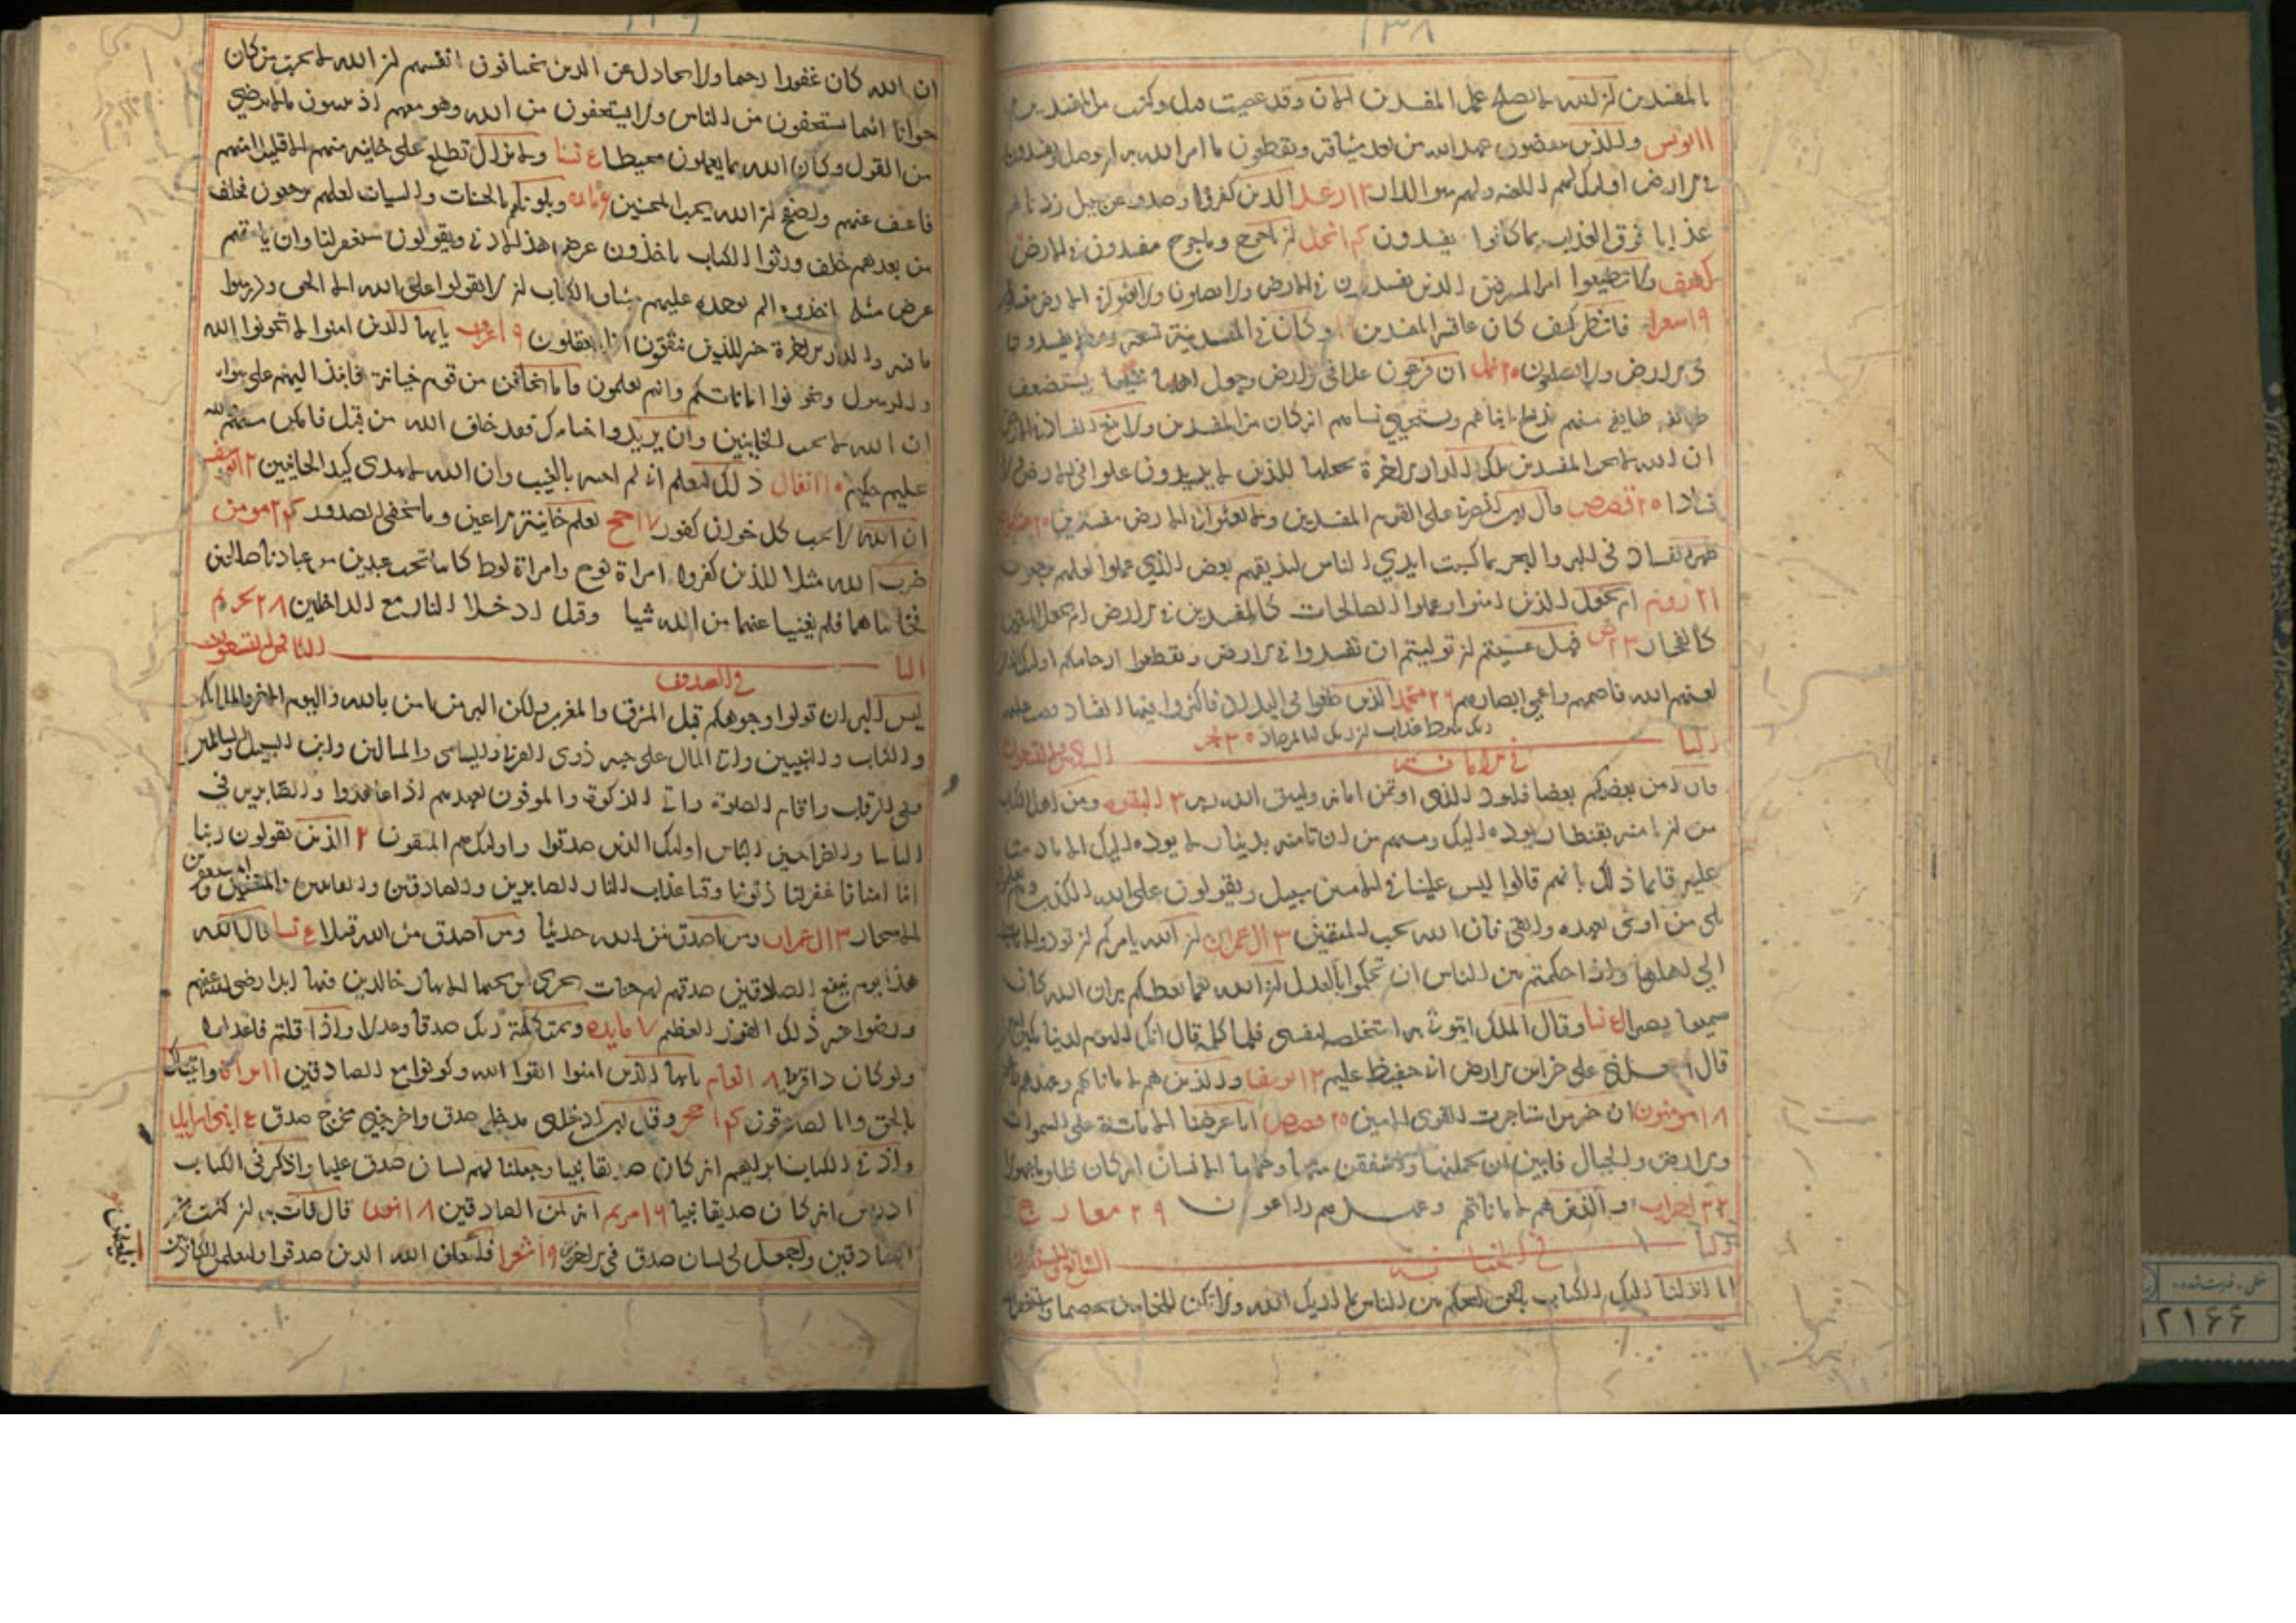 ۱۳۸
المفسدين لز الله لا يصلح عمل المفسدين الان وقد عصيت قبل وكنت من المفسدين
۱۱ يونس والذين ينقضون عهد الله من بعد ميثاقه ويقطعون ما امر الله به ان يوصل ويفسدون
في الارض اولئك لهم اللعنه ولهم سوء الدار ۱۳ رعد الذين كفروا وصدوا عن سبيل زدناهم
عذابا فوق العذاب بما كانوا يفسدون نحل لز ياجوج وماجوج مفسدون في الارض
كهف ولا تطيعوا امر المسرفين الذين يفسدون في الارض ولا يصلحون ولا تعثوا في الارض مفسدين
۱۹ شعرا فانظر كيف كان عاقبه المفسدين وكان في المدينة تسعه رهط يفسدون
في الارض ولا يصلحون ۲۰ نمل ان فرعون علا في الارض وجعل اهلها شيعا يستضعف
طائفه منهم يذبح ابناءهم ويستحيي نساءهم انه كان من المفسدين ولا تبغ الفساد في الارض
ان الله لا يحب المفسدين تلك الدار الاخرة نجعلها للذين لا يريدون علوا في الارض ولا
فسادا ۲۰ قصص قال رب انصرني على القوم المفسدين ولا تعثوا في الارض مفسدين ۲۰ عنكبوت
ظهر الفساد في البر والبحر بما كسبت ايدي الناس ليذيقهم بعض الذي عملوا لعلهم يرجعون
۲۱ روم ام نجعل الذين امنوا وعملوا الصالحات كالمفسدين في الارض ام نجعل المتقين
كالفجار ۲۳ ص فهل عسيتم لز توليتم ان تفسدوا في الارض وتقطعوا ارحامكم اولئك الذين
لعنهم الله فاصمهم واعمى ابصارهم ۲۶ محمد الذين طغوا في البلاد فاكثروا فيها الفساد فصب عليهم
ربك سوط عذاب لز ربك لبالمرصاد ۳۰ فجر
البا في الامانة
فان امن بعضكم بعضا فليؤد الذي اوتمن امانته وليتق الله ربه ۳ البقره ومن اهل الكتاب
من لز تامنه بقنطار يوده اليك ومنهم من ان تامنه بدينار لا يوده اليك الا ما دمت
عليه قايما ذلك بانهم قالوا ليس علينا في الاميين سبيل ويقولون على الله الكذب وهم يعلمون
بلى من اوفى بعهده واتقى فان الله يحب المتقين ۳ ال عمران لز الله يامركم لز تودوا الامانات
الى اهلها واذا حكمتم بين الناس ان تحكموا بالعدل لز الله نعما يعظكم به ان الله كان
سميعا بصيرا نسا وقال الملك ايتوني به استخلصه لنفسي فلما كلمه قال انك اليوم لدينا مكين امين
قال اجعلني على خزاين الارض اني حفيظ عليم ۱۳ يوسف والذين هم لاماناتهم وعهدهم راعون
۱۸ مومنون ان خير من استاجرت القوي الامين ۲۰ قصص انا عرضنا الامانة على السموات
والارض والجبال فابين ان يحملنها واشفقن منها وحملها الانسان انه كان ظلوما جهولا
۲۲ احزاب والذين هم لاماناتهم وعهدهم راعون ۲۹ معارج
البا في الخيانة
انا انزلنا اليك الكتاب بالحق لتحكم بين الناس بما اريك الله ولا تكن للخاينين خصيما واستغفر الله
ان الله كان غفورا رحيما ولا تجادل عن الذين يختانون انفسهم لز الله لا يحب من كان
خوانا اثيما يستخفون من الناس ولا يستخفون من الله وهو معهم اذ يبيتون ما لا يرضى
من القول وكان الله بما يعملون محيطا نسا ولا تزال تطلع على خاينه منهم الا قليلا منهم
فاعف عنهم واصفح لز الله يحب المحسنين مايده وبلوناهم بالحسنات والسيات لعلهم يرجعون فخلف
من بعدهم خلف ورثوا الكتاب ياخذون عرض هذا الادنى ويقولون سيغفر لنا وان ياتهم
عرض مثله ياخذوه الم يوخذ عليهم ميثاق الكتاب لز لا يقولوا على الله الا الحق ودرسوا
ما فيه والدار الاخرة خير للذين يتقون افلا تعقلون ۹ اعراف يايها الذين امنوا لا تخونوا الله
والرسول وتخونوا اماناتكم وانتم تعلمون واما تخافن من قوم خيانة فانبذ اليهم على سواء
ان الله لا يحب الخاينين وان يريدوا خيانتك فقد خانوا الله من قبل فامكن منهم والله
عليم حكيم ۱۰ انفال ذلك ليعلم اني لم اخنه بالغيب وان الله لا يهدي كيد الخاينين ۱۲ يوسف
ان الله لا يحب كل خوان كفور ۱۷ حج يعلم خاينة الاعين وما تخفي الصدور ۲۴ مومن
ضرب الله مثلا للذين كفروا امراة نوح وامراة لوط كانتا تحت عبدين من عبادنا صالحين
فخانتاهما فلم يغنيا عنهما من الله شيا وقيل ادخلا النار مع الداخلين ۲۸ تحريم
البا الثامن والتسعون
في الصدق
ليس البر ان تولوا وجوهكم قبل المشرق والمغرب ولكن البر من امن بالله واليوم الاخر والملائكة
والكتاب والنبيين واتى المال على حبه ذوي القربى واليتامى والمساكين وابن السبيل والسائلين
وفي الرقاب واقام الصلوة واتى الزكوة والموفون بعهدهم اذا عاهدوا والصابرين في
الباسا والضرا وحين الباس اولئك الذين صدقوا واولئك هم المتقون ۲ الذين يقولون ربنا
اننا امنا فاغفر لنا ذنوبنا وقنا عذاب النار الصابرين والصادقين والقانتين والمنفقين والمستغفرين
بالاسحار ۳ ال عمران ومن اصدق من الله حديثا ومن اصدق من الله قيلا نسا قال الله
هذا يوم ينفع الصادقين صدقهم لهم جنات تجري من تحتها الانهار خالدين فيها ابدا رضي الله عنهم
ورضوا عنه ذلك الفوز العظيم ۷ مايده وتمت كلمة ربك صدقا وعدلا واذا قلتم فاعدلوا
ولو كان ذا قربى ۸ انعام يايها الذين امنوا اتقوا الله وكونوا مع الصادقين ۱۱ براة واتيناك
بالحق وانا لصادقون حجر وقل رب ادخلني مدخل صدق واخرجني مخرج صدق بني اسرايل
واذكر في الكتاب ابراهيم انه كان صديقا نبيا وجعلنا لهم لسان صدق عليا واذكر في الكتاب
ادريس انه كان صديقا نبيا ۱۶ مريم انه لمن الصادقين ۱۸ نور قال فات به لز كنت من
الصادقين واجعل لي لسان صدق في الاخرين ۱۹ شعرا فليعلمن الله الذين صدقوا وليعلمن الكاذبين
۱۲۱۶۶